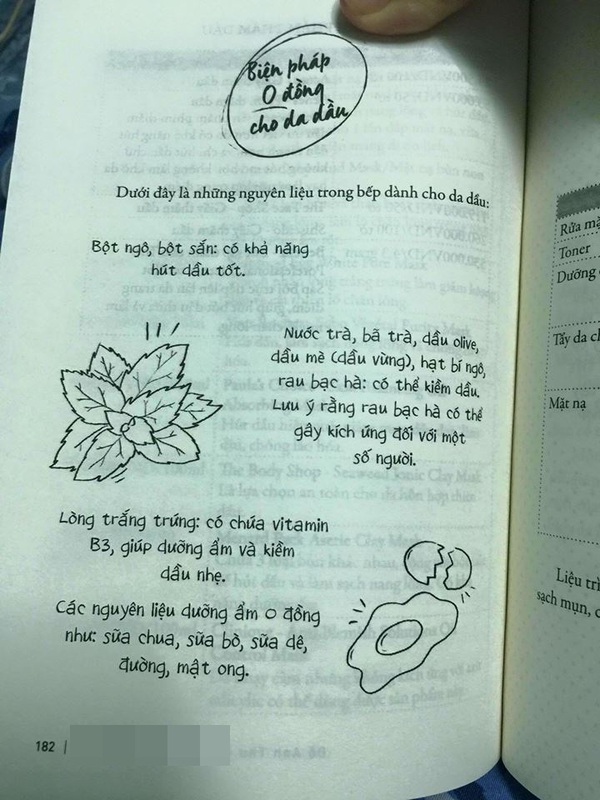 Biện pháp
0 đồng
cho da dầu
Dưới đây là những nguyên liệu trong bếp dành cho da dầu:
Bột ngô, bột sắn: có khả năng
hút dầu tốt.
Nước trà, bã trà, dầu olive,
dầu mè (dầu vừng), hạt bí ngô,
rau bạc hà: có thể kiềm dầu.
Lưu ý rằng rau bạc hà có thể
gây kích ứng đối với một
số người.
Lòng trắng trứng: có chứa vitamin
B3, giúp dưỡng ẩm và kiềm
dầu nhẹ.
Các nguyên liệu dưỡng ẩm 0 đồng
như: sữa chua, sữa bò, sữa dê,
đường, mật ong.
182 |
Rửa mặ
Toner
Dưỡng
Tẩy da ch
Mặt nạ
Liệu tr
sạch mụn, c